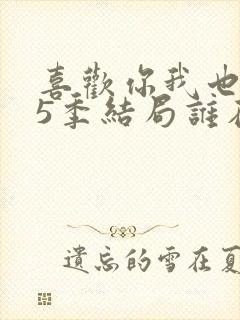 喜歡你我也
5季結局誰
遺忘的雪在夏